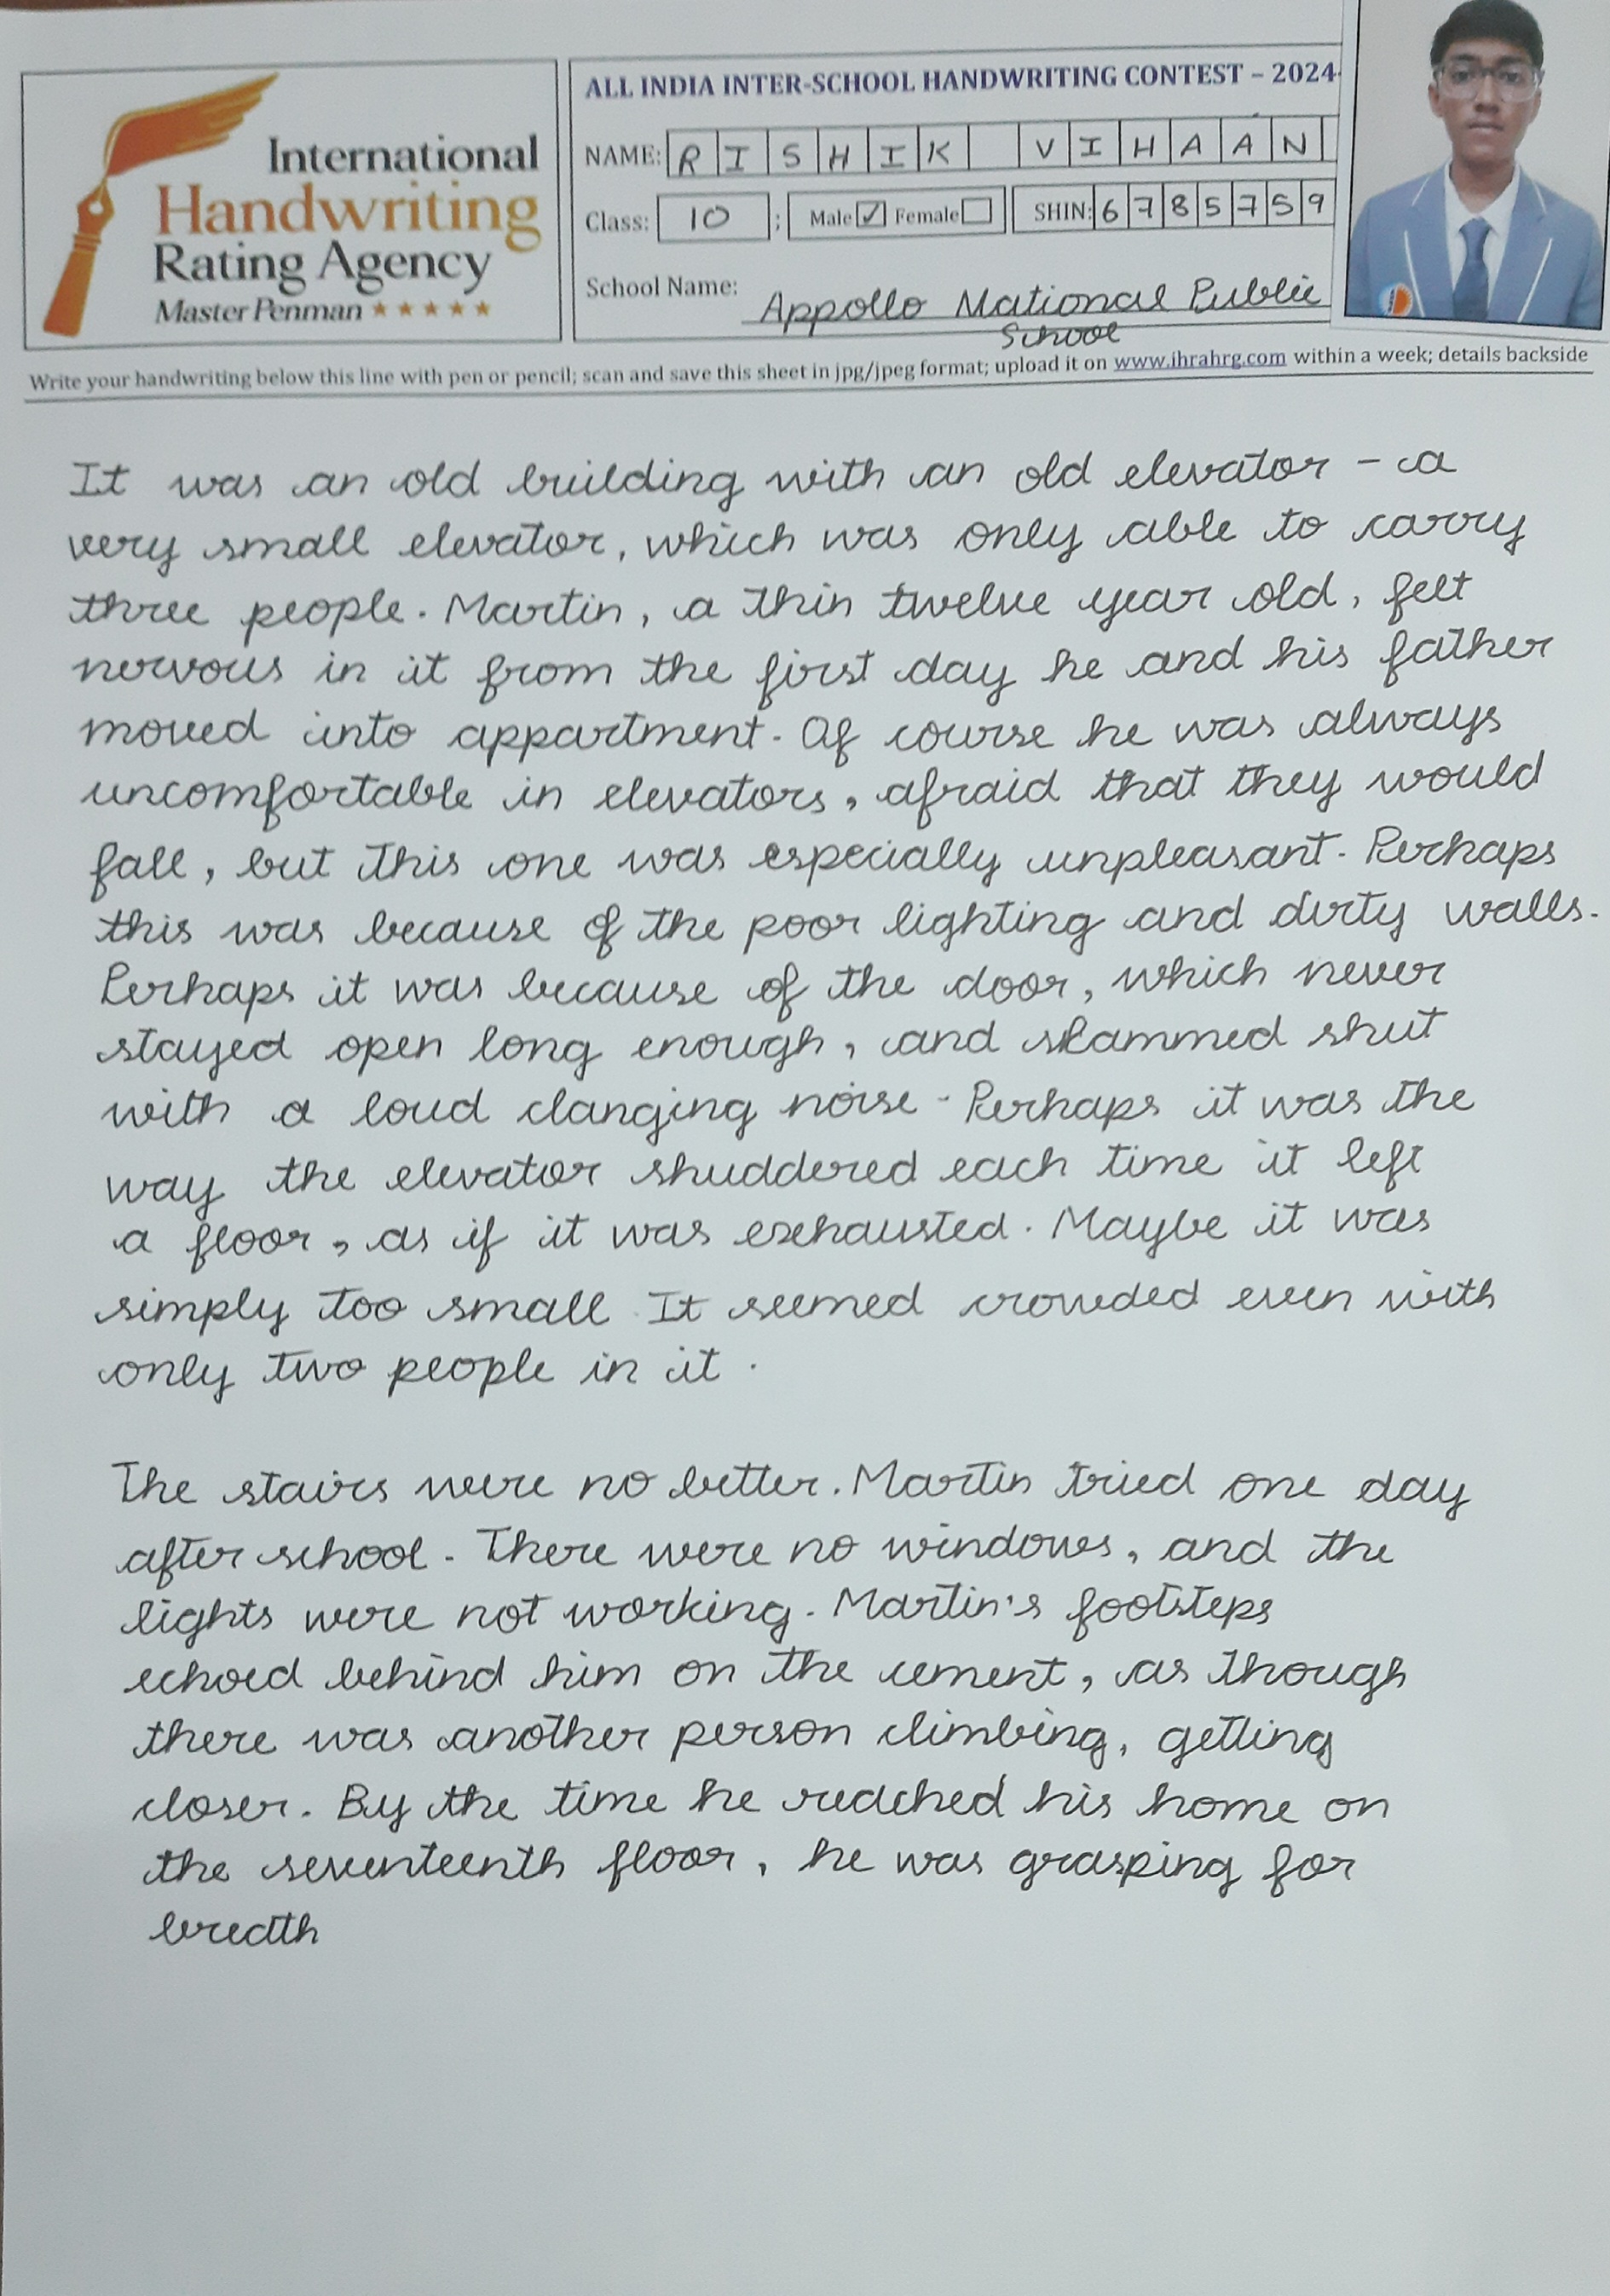 International
Handwriting
Rating Agency
Master Penman
ALL INDIA INTER-SCHOOL HANDWRITING CONTEST – 2024-
NAME: RISHIK VIHAAN
Class: 10 ; Male ✓ Female SHIN: 6785759
School Name: Appollo National Public
School
Write your handwriting below this line with pen or pencil; scan and save this sheet in jpg/jpeg format; upload it on www.ihrahrg.com within a week; details backside
It was an old building with an old elevator – a
very small elevator, which was only able to carry
three people. Martin, a thin twelve year old, felt
nervous in it from the first day he and his father
moved into appartment. Of course he was always
uncomfortable in elevators, afraid that they would
fall, but this one was especially unpleasant. Perhaps
this was because of the poor lighting and dirty walls.
Perhaps it was because of the door, which never
stayed open long enough, and slammed shut
with a loud clanging noise. Perhaps it was the
way the elevator shuddered each time it left
a floor, as if it was exhausted. Maybe it was
simply too small. It seemed crowded even with
only two people in it.
The stairs were no better. Martin tried one day
after school. There were no windows, and the
lights were not working. Martin's footsteps
echoed behind him on the cement, as though
there was another person climbing, getting
closer. By the time he reached his home on
the seventeenth floor, he was grasping for
breath